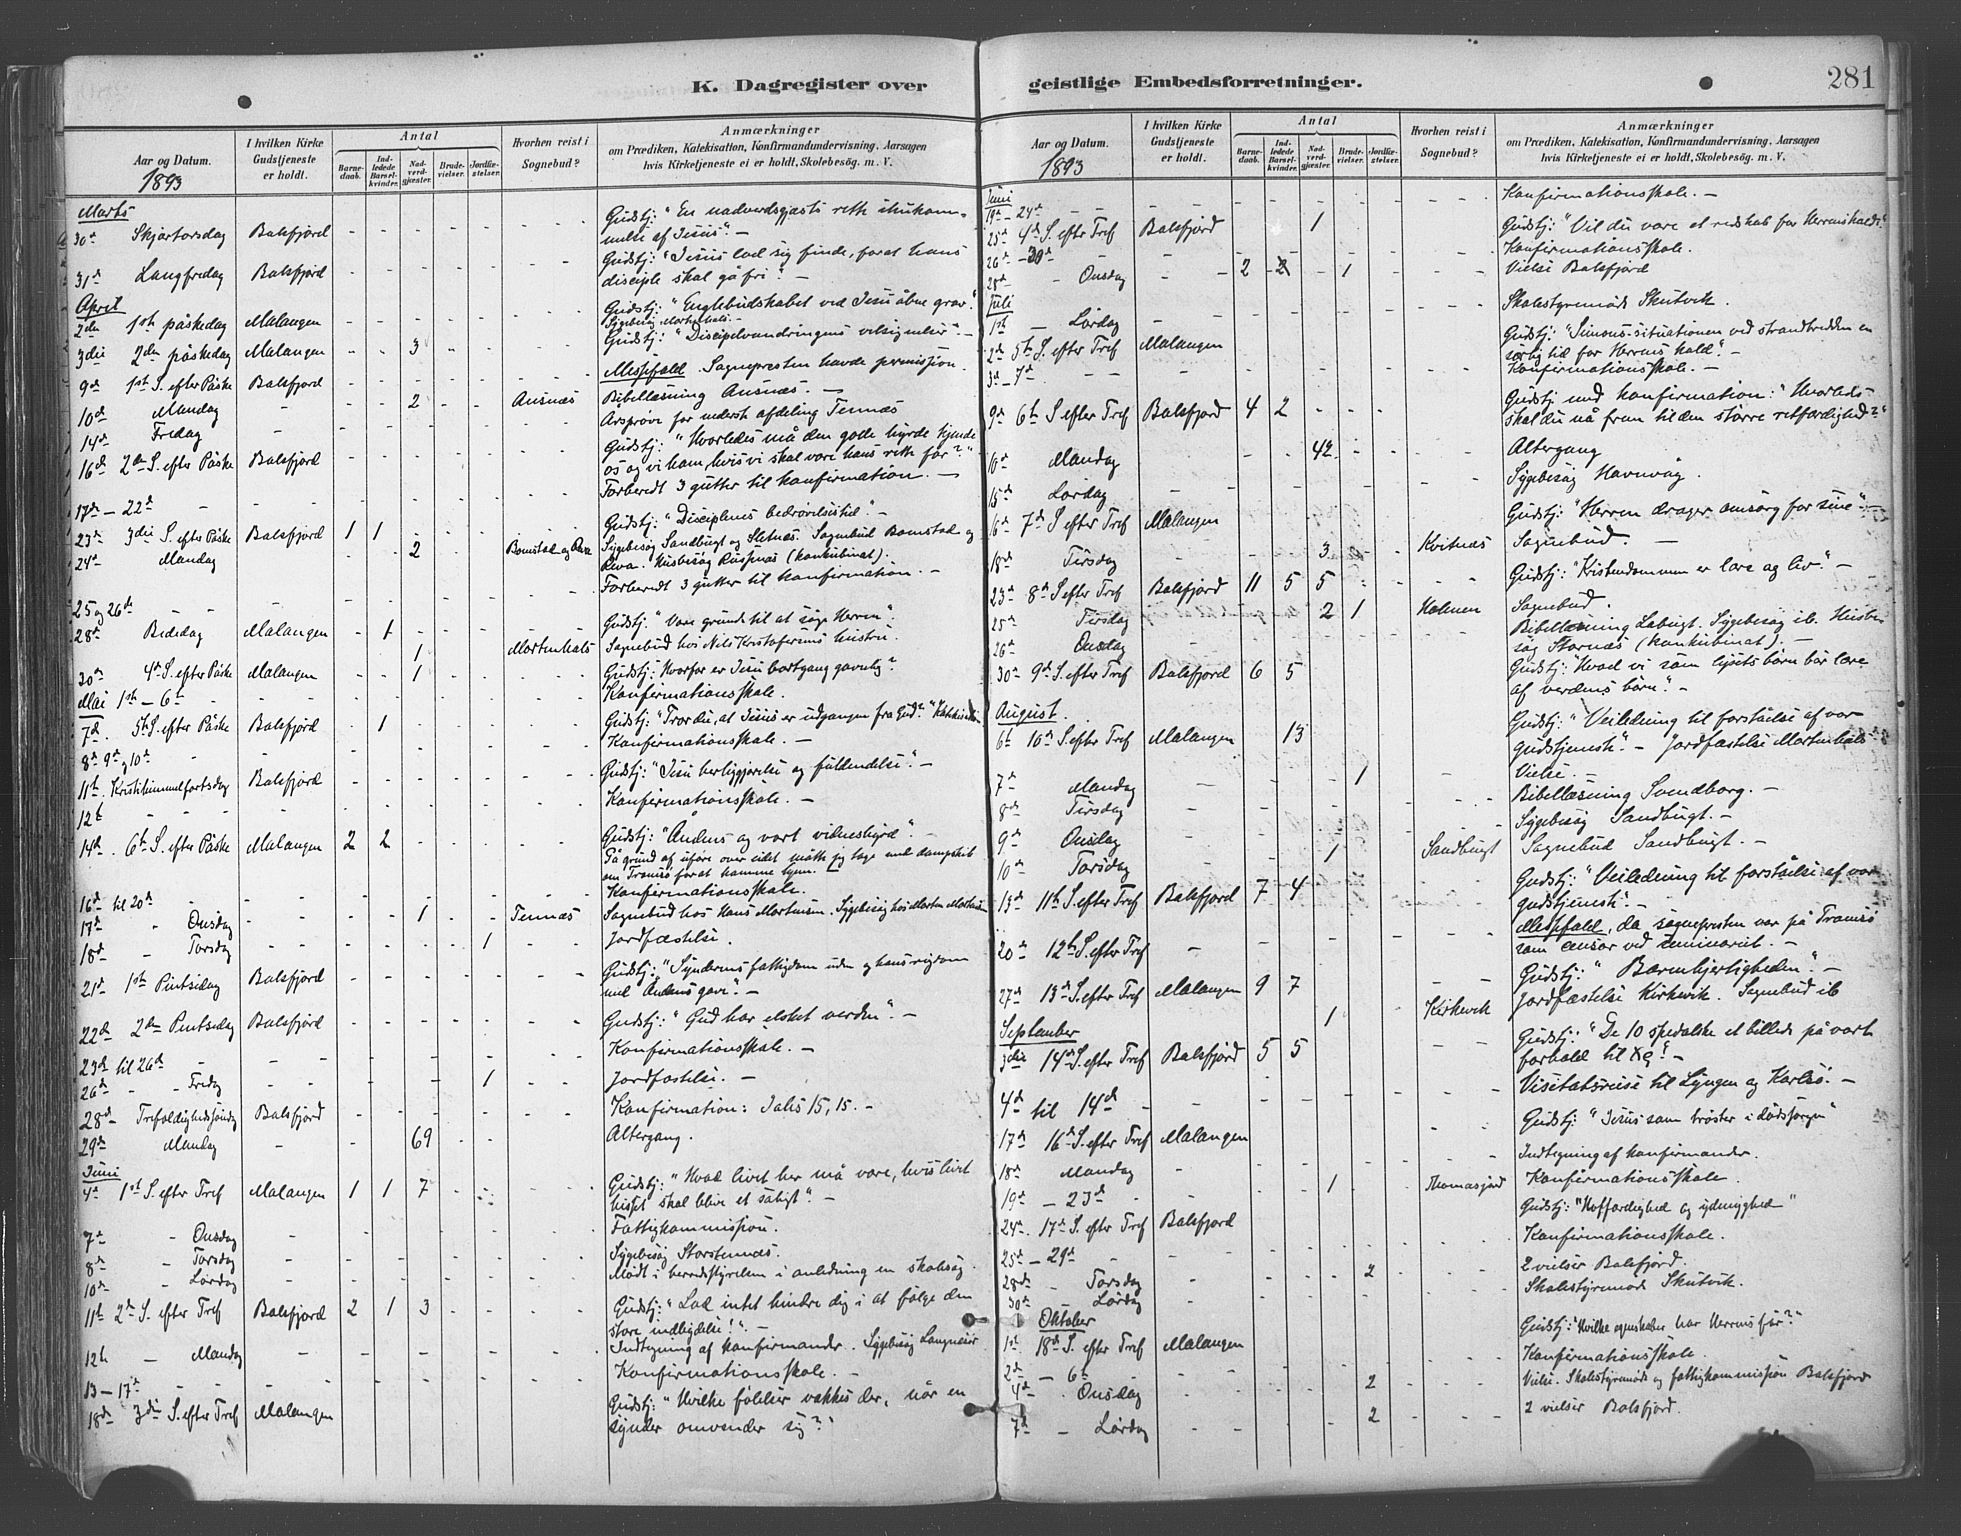 K. Dagregister over
Aar og Datum.
1893
I hvilken Kirke
Gudstjeneste
er holdt.
Antal
Barne-
daab.
Ind-
ledede
Barsel-
kvinder.
Nad-
verd-
gjæster.
Brude-
vielser.
Jordfæ-
stelser.
Hvorhen reist i
Sognebud?
Anmærkninger
om Prædiken, Katekisation, Konfirmandundervisning, Aarsagen
hvis Kirketjeneste ei er holdt, Skolebesøg. m. V.
Marts
Gudstj: "En nadverdsgjæsts rette ihukom-
30te Skjærtorsdag Balsfjord
melse af Jesus". —
Gudstj: "Jesus lod sig finde, forat hans
31te Langfredag Balsfjord
disciple skal gå fri". —
April
Gudstj: "Englebudskabet ved Jesu åbne grav".
2den 1ste påskedag Malangen
Sygebesøg Mortenhals.
Gudstj: "Discipelvandringens velsignelse". —
3die 2den påskedag Malangen 3
Messefald. Sognepresten havde permission.
9de 1ste S. efter Påske Balsfjord
Bibellæsning Ansnæs. —
10de Mandag - 2 Ansnæs
14de Fredag
Årsprøve for nederste afdeling Tennæs
Gudstj: "Hvorledes må den gode hyrde kjende
16de 2den S. efter Påske Balsfjord
os og vi ham, hvis vi skal være hans rette får?"
17de — 22de
Forberedt 3 gutter til konfirmation. —
Gudstj: "Disciplenes bedrøvelsestid". —
23de 3die S. efter Påske Balsfjord 1 1
Sygebesøg Sandbugt og Sletnæs. Sognebud Bomstad og
24de Mandag 2 Bomstad og
Husbesøg Russenæs (konkubinat).
25 og 26de
Forberedt 3 gutter til konfirmation. —
28de Bededag Malangen 1
Gudstj: "Vore grunde til at søge Herren".
1 Mortenhals Sognebud hos Nils Kristofersens hustru.
30te 4de S. efter Påske Malangen 1
Gudstj: "Hvorfor er Jesu bortgang gavnlig?"
Mai 1ste — 6te
Konfirmationsskole.
7de 5te S. efter Påske Balsfjord 1
Gudstj: "Tror du, at Jesus er udgangen fra Gud?"
8de 9de og 10de
Konfirmationsskole. —
11te Kristi himmelfartsdag Balsfjord
Gudstj: "Jesu herliggjørelse og fuldendelse". —
12te
Konfirmationsskole. —
14de 6te S. efter Påske Malangen 2 2
Gudstj: "Åndens og vort vidnesbyrd". —
På grund af uføre over eidet måtte jeg tage med dampskib
om Tromsø forat komme hjem.
16de til 20de
Konfirmationsskole.
17de Onsdag 1 Tennæs
Sognebud hos Hans Mortensen. Sygebesøg hos Morten Mortensen
18de Torsdag 1
Jordfæstelse.
21de 1ste Pintsedag Balsfjord
Gudstj: "Synderens fattigdom uden og hans rigdom
med Åndens gave". —
22de 2den Pintsedag Balsfjord
Gudstj: "Gud har elsket verden". —
23de til 26de
Konfirmationsskole. —
26de Fredag 1
Jordfæstelse. —
28de Trefoldighedssøndag Balsfjord
Konfirmation: Johs 15, 15. —
29de Mandag - 69
Altergang.
Juni
4de 1ste S. efter Tref Malangen 1 1 7
Gudstj: "Hvad livet her må være, hvis livet
hisset skal blive et saligt". —
7de Onsdag
Fattigkommission.
8de Torsdag
Sygebesøg Storstennæs.
10de Lørdag
Mødt i herredstyrelsen i anledning en skolesag.
11te 2den S. efter Tref Balsfjord 2 1 3
Gudstj: "Lad intet hindre dig i at følge den
store indbydelse!". —
12te — Mandag
Indtegning af konfirmander. Sygebesøg
13 — 17de
Konfirmationsskole. —
18de 3die S. efter Tref Malangen
Gudstj: "Hvilke følelser vækkes der, når en
synder omvender sig?"
geistlige Embedsforretninger.
281
Aar og Datum.
1893
I hvilken Kirke
Gudstjeneste
er holdt.
Antal
Barne-
daab.
Ind-
ledede
Barsel-
kvinder.
Nad-
verd-
gjæster.
Brude-
vielser.
Jordfæ-
stelser.
Hvorhen reist i
Sognebud?
Anmærkninger
om Prædiken, Katekisation, Konfirmandundervisning, Aarsagen
hvis Kirketjeneste ei er holdt, Skolebesøg. m. V.
Juni
19de — 24de
Konfirmationsskole. —
25de 4de S. efter Tref Balsfjord 1
Gudstj: "Vil du være et redskab for Herrens kald?"
26de — 30te
Konfirmationsskole.
28de Onsdag 2 2 1
Vielse Balsfjord
Juli
1ste — Lørdag
Skolestyremøde Skutvik.
2den 5te S. efter Tref Malangen
Gudstj: "Simons situationen ved strandbredden en
særlig tid for Herrens kald". —
3de — 7de
Konfirmationsskole. —
9de 6te S. efter Tref Balsfjord 4 2
Gudstj med konfirmation: "Hvorledes
skal du nå frem til den større retfærdighed?"
10de Mandag 42
Altergang
15de Lørdag
Sygebesøg Havnvåg.
16de 7de S. efter Tref Malangen
Gudstj: "Herren drager omsorg for sine". —
18de Tirsdag 3 Kvitnæs
Sognebud. —
23de 8de S. efter Tref Balsfjord 11 5 5
Gudstj: "Kristendommen er lære og liv". —
25de Tirsdag 2 1 Holmen
Sognebud.
26de Onsdag
Bibellæsning Sygebesøg ib. Husbe-
søg Stornæs (konkubinat). —
30te 9de S. efter Tref Balsfjord 6 5
Gudstj: "Hvad vi som lysets børn bør lære
af verdens børn". —
August.
6te 10de S. efter Tref Malangen 13
Gudstj: "Veiledning til forståelse af vor
gudstjeneste". — Jordfæstelse Mortenhals
7de Mandag 1
Vielse. —
8de Tirsdag
Bibellæsning Svendborg. —
9de Onsdag
Sygebesøg Sandbugt. —
10de Torsdag 1 Sandbugt
Sognebud Sandbugt. —
13de 11te S. efter Tref Balsfjord 7 4
Gudstj: "Veiledning til forståelse af vor
gudstjeneste". —
20de 12te S. efter Tref
Messefald, da sognepresten var på Tromsø
som censor ved seminariet. —
27de 13de S. efter Tref Malangen 9 7
Gudstj: "Barmhjertigheden". —
1 Kirkevik
Jordfæstelse Kirkevik. Sognebud ib
September
3die 14de S. efter Tref Balsfjord 5 5
Gudstj: "De 10 spedalske et billede på vort
forhold til
4de til 14de
Visitatsreise til Lyngen og Karlsø. —
17de 16de S. efter Tref Malangen
Gudstj: "Jesus som trøster i dødssorgen"
18de Mandag
Indtegning af konfirmander.
19de — 23de 1 Thomasjord
Konfirmationsskole.
24de 17de S. efter Tref Balsfjord
Gudstj: "Hoffærdighed og ydmyghed"
25de — 29de
Konfirmationsskole.
28de Torsdag 2
2 vielser Balsfjord.
30te Lørdag
Skolestyremøde Skutvik.
Oktober
1ste 18de S. efter Tref Malangen
Gudstj: "Hvilke egenskaber har Herrens får?"
2de — 6te
Konfirmationsskole.
4de Onsdag 2
Vielse. Skolestyremøde og fattigkommission Balsfjord
7de — Lørdag 2
2 vielser Balsfjord.